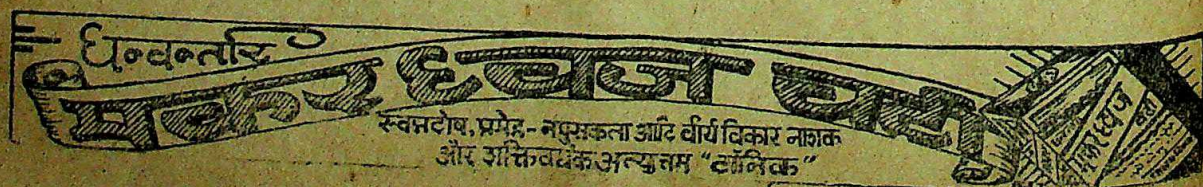 धन्वन्तरि
मकरध्वज वटी
स्वप्नदोष, प्रमेह-नपुंसकता आदि वीर्य विकार नाशक
और शक्तिवर्धक अत्युत्तम "टॉनिक"
मकरध्वज
वटी